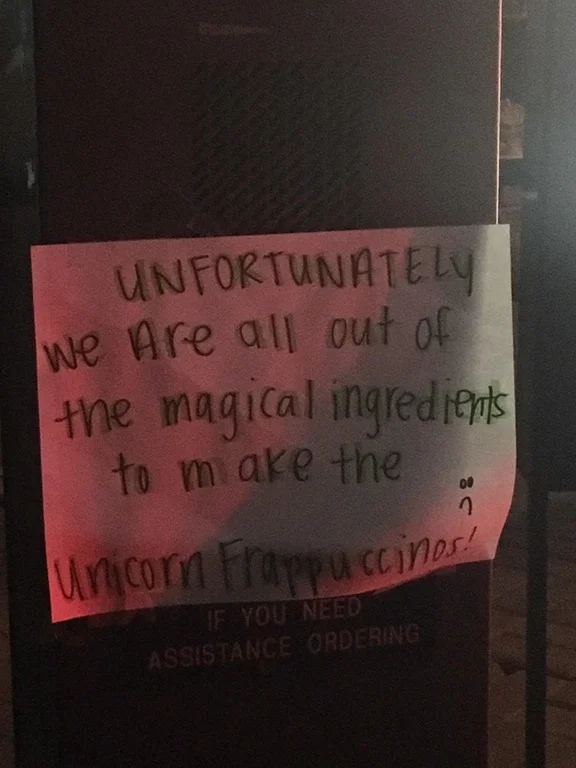 UNFORTUNATELY
we Are all out of
the magical ingredients
to make the
Unicorn Frappuccinos!
IF YOU NEED
ASSISTANCE ORDERING